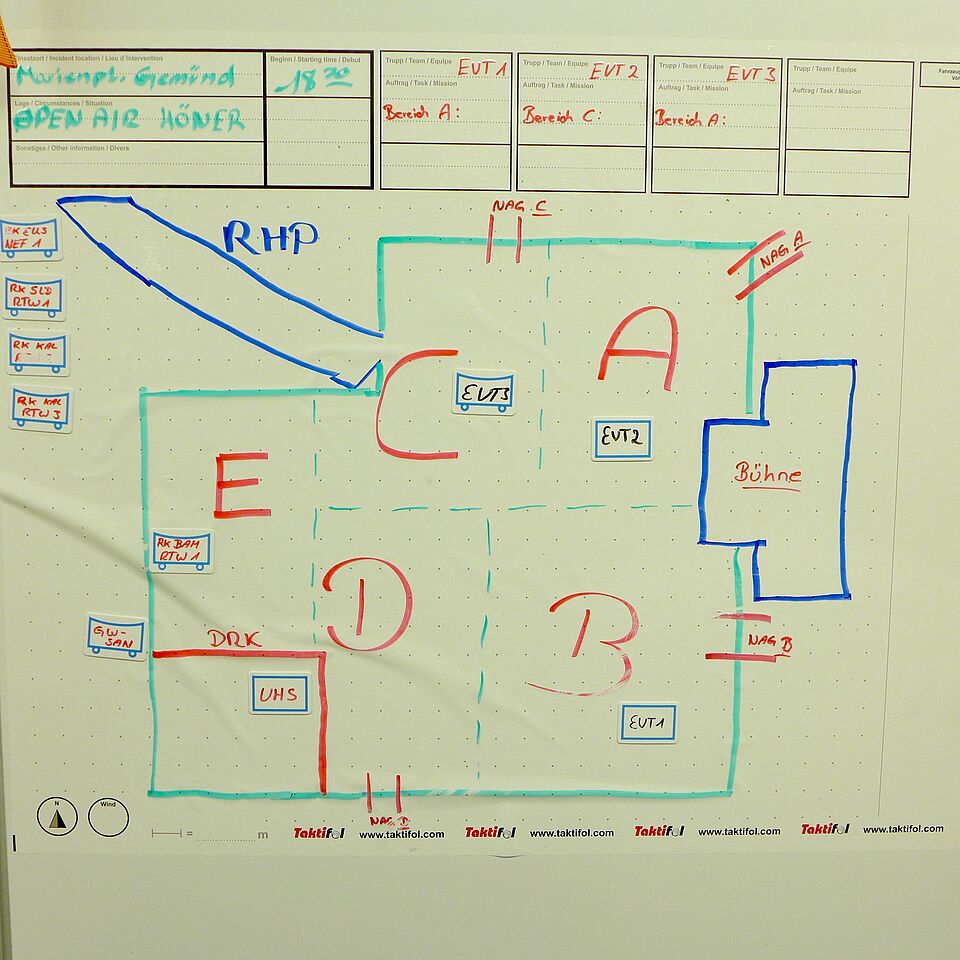 Einsatzort / Incident location / Lieu d'intervention
Marienpl. Gemünd
Beginn / Starting time / Debut
18 30
Lage / Circumstances / Situation
OPEN AIR HÖNER
Sonstiges / Other information / Divers
Trupp / Team / Equipe EVT 1
Auftrag / Task / Mission
Bereich A:
Trupp / Team / Equipe EVT 2
Auftrag / Task / Mission
Bereich C:
Trupp / Team / Equipe EVT 3
Auftrag / Task / Mission
Bereich A:
Trupp / Team / Equipe
Auftrag / Task / Mission
RK EUS
NEF 1
RK SLE
RTW 1
RK KAL
RK KAL
RTW 3
RHP
NAG. C
NAG A
C
A
EVT3
EVT2
E
Bühne
RK BAM
RTW 1
GW-
SAN
DRK
D
B
NAG B
UHS
EVT1
NAG. D
N
Wind
= m
Taktifol www.taktifol.com
Taktifol www.taktifol.com
Taktifol www.taktifol.com
Taktifol www.taktifol.com